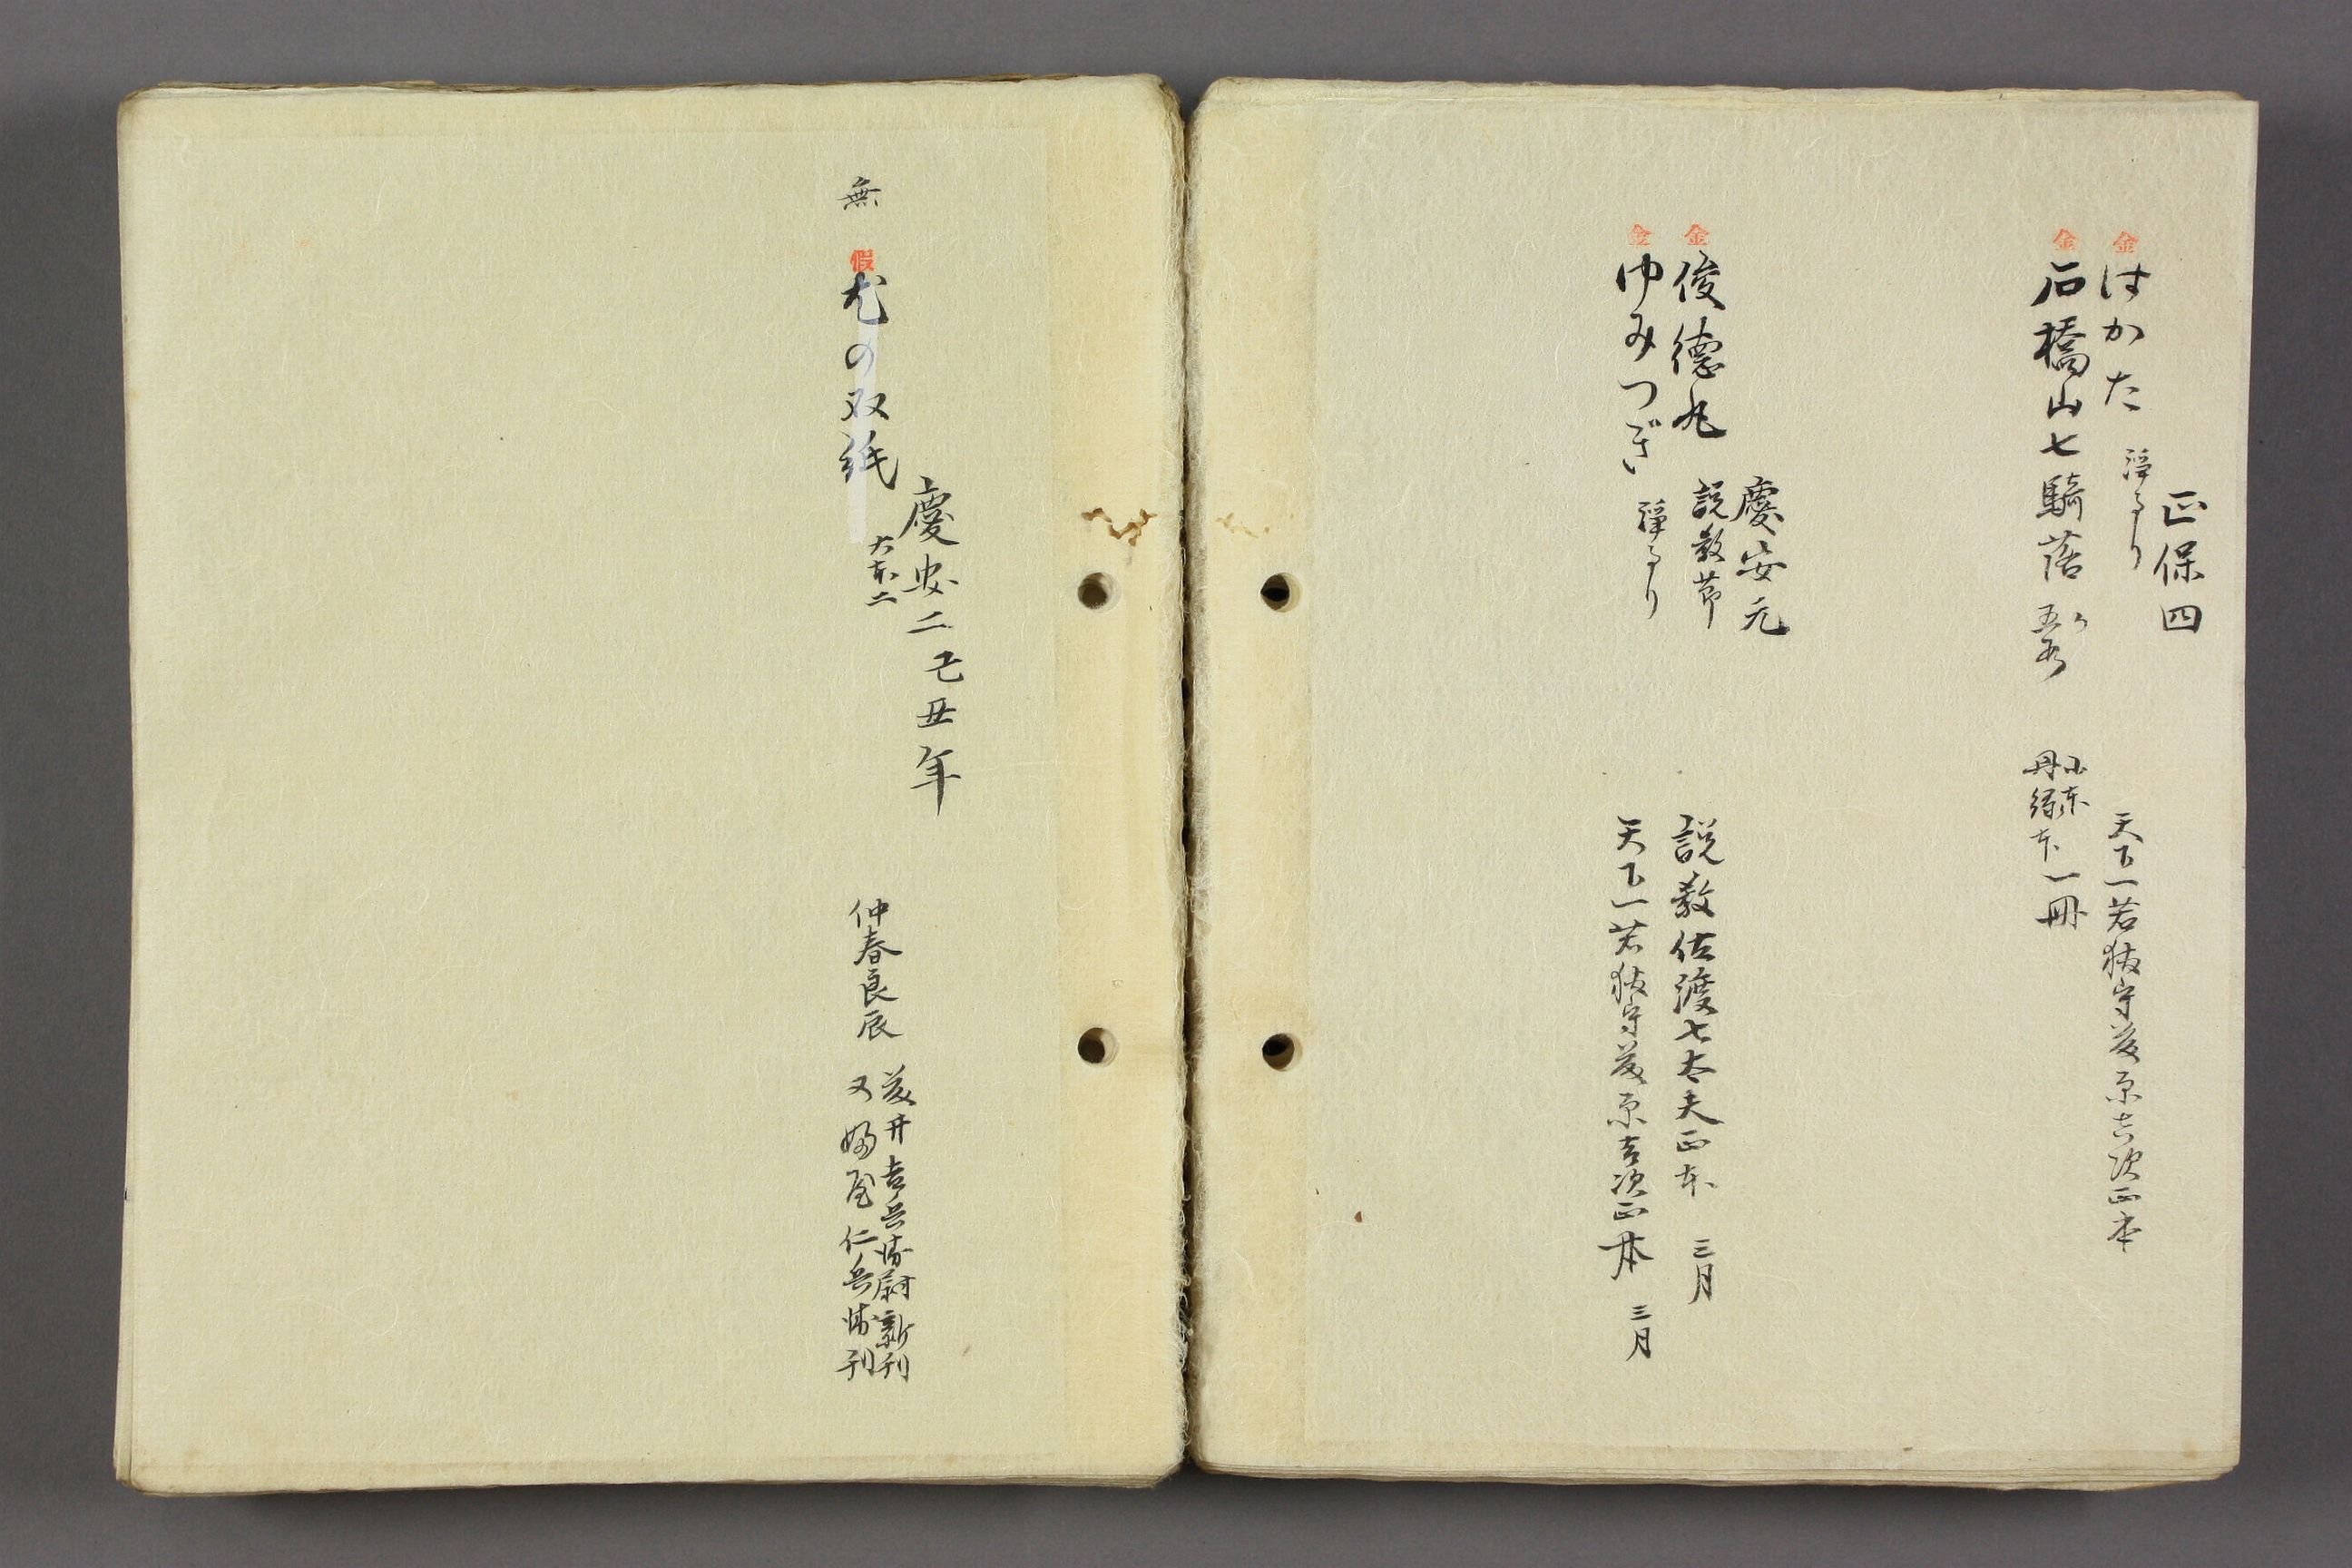 正保四
金 はかた 浄るり 天下一若狭守藤原吉次正本
金 石橋山七騎落 小本 丹緑本一冊
慶安元
金 俊徳丸 説教節 説教佐渡七太夫正本 三月
金 ゆみつぎ 浄るり 天下一若狭守藤原吉次正本 三月
慶安二己丑年
無 假 尤の双紙 大本二 仲春良辰 藤井吉兵衛尉新刊
又婦屋仁兵衛刊